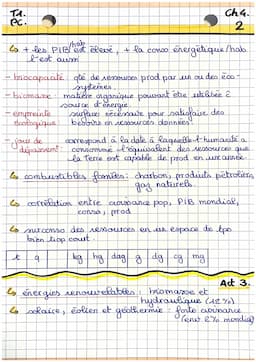 T1.
PC.
Ch 4.
2
/hab
↳ + les PIB est élevé, + la conso énergétique/hab
l'est aussi
- biocapacité qté de ressources prod par un ou des éco-
systèmes
- biomasse matière organique pouvant être utilisée è
source d'énergie.
- empreinte écologique: surface nécessaire pour satisfaire des
besoins en ressources données
- jour de dépassement correspond à la date à laquelle l'humanité a
consommé l'équivalent des ressources que
la Terre est capable de prod en une année.
↳ combustibles fossiles: charbon, produits pétroliers,
gaz naturels.
↳ corrélation entre croissance pop, PIB mondial,
conso, prod
↳ surconso des ressources en un espace de tps
bien trop court.
t q kg hg dag g dg cg mg
Act 3.
↳ énergies renouvelables: biomasse et
hydraulique (12%)
↳ solaire, éolien et géothermie: forte croissance
(env 2% mondial)